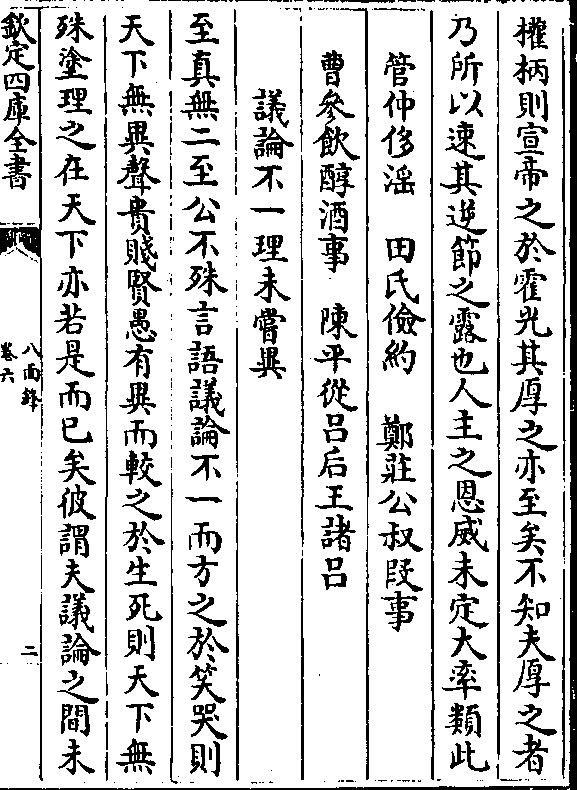 權柄則宣帝之於霍光其厚之亦至矣不知夫厚之者
乃所以速其逆節之露也人主之恩威未定大率類此
管仲侈滛　田氏儉約　鄭莊公叔段事
曹參飲醇酒事　陳平從吕后王諸吕
議論不一理未嘗異
至真無二至公不殊言語議論不一而方之於笑哭則
天下無異聲貴賤賢愚有異而較之於生死則天下無
殊塗理之在天下亦若是而已矣彼謂夫議論之間未
欽定四庫全書
八面鋒
卷六
二